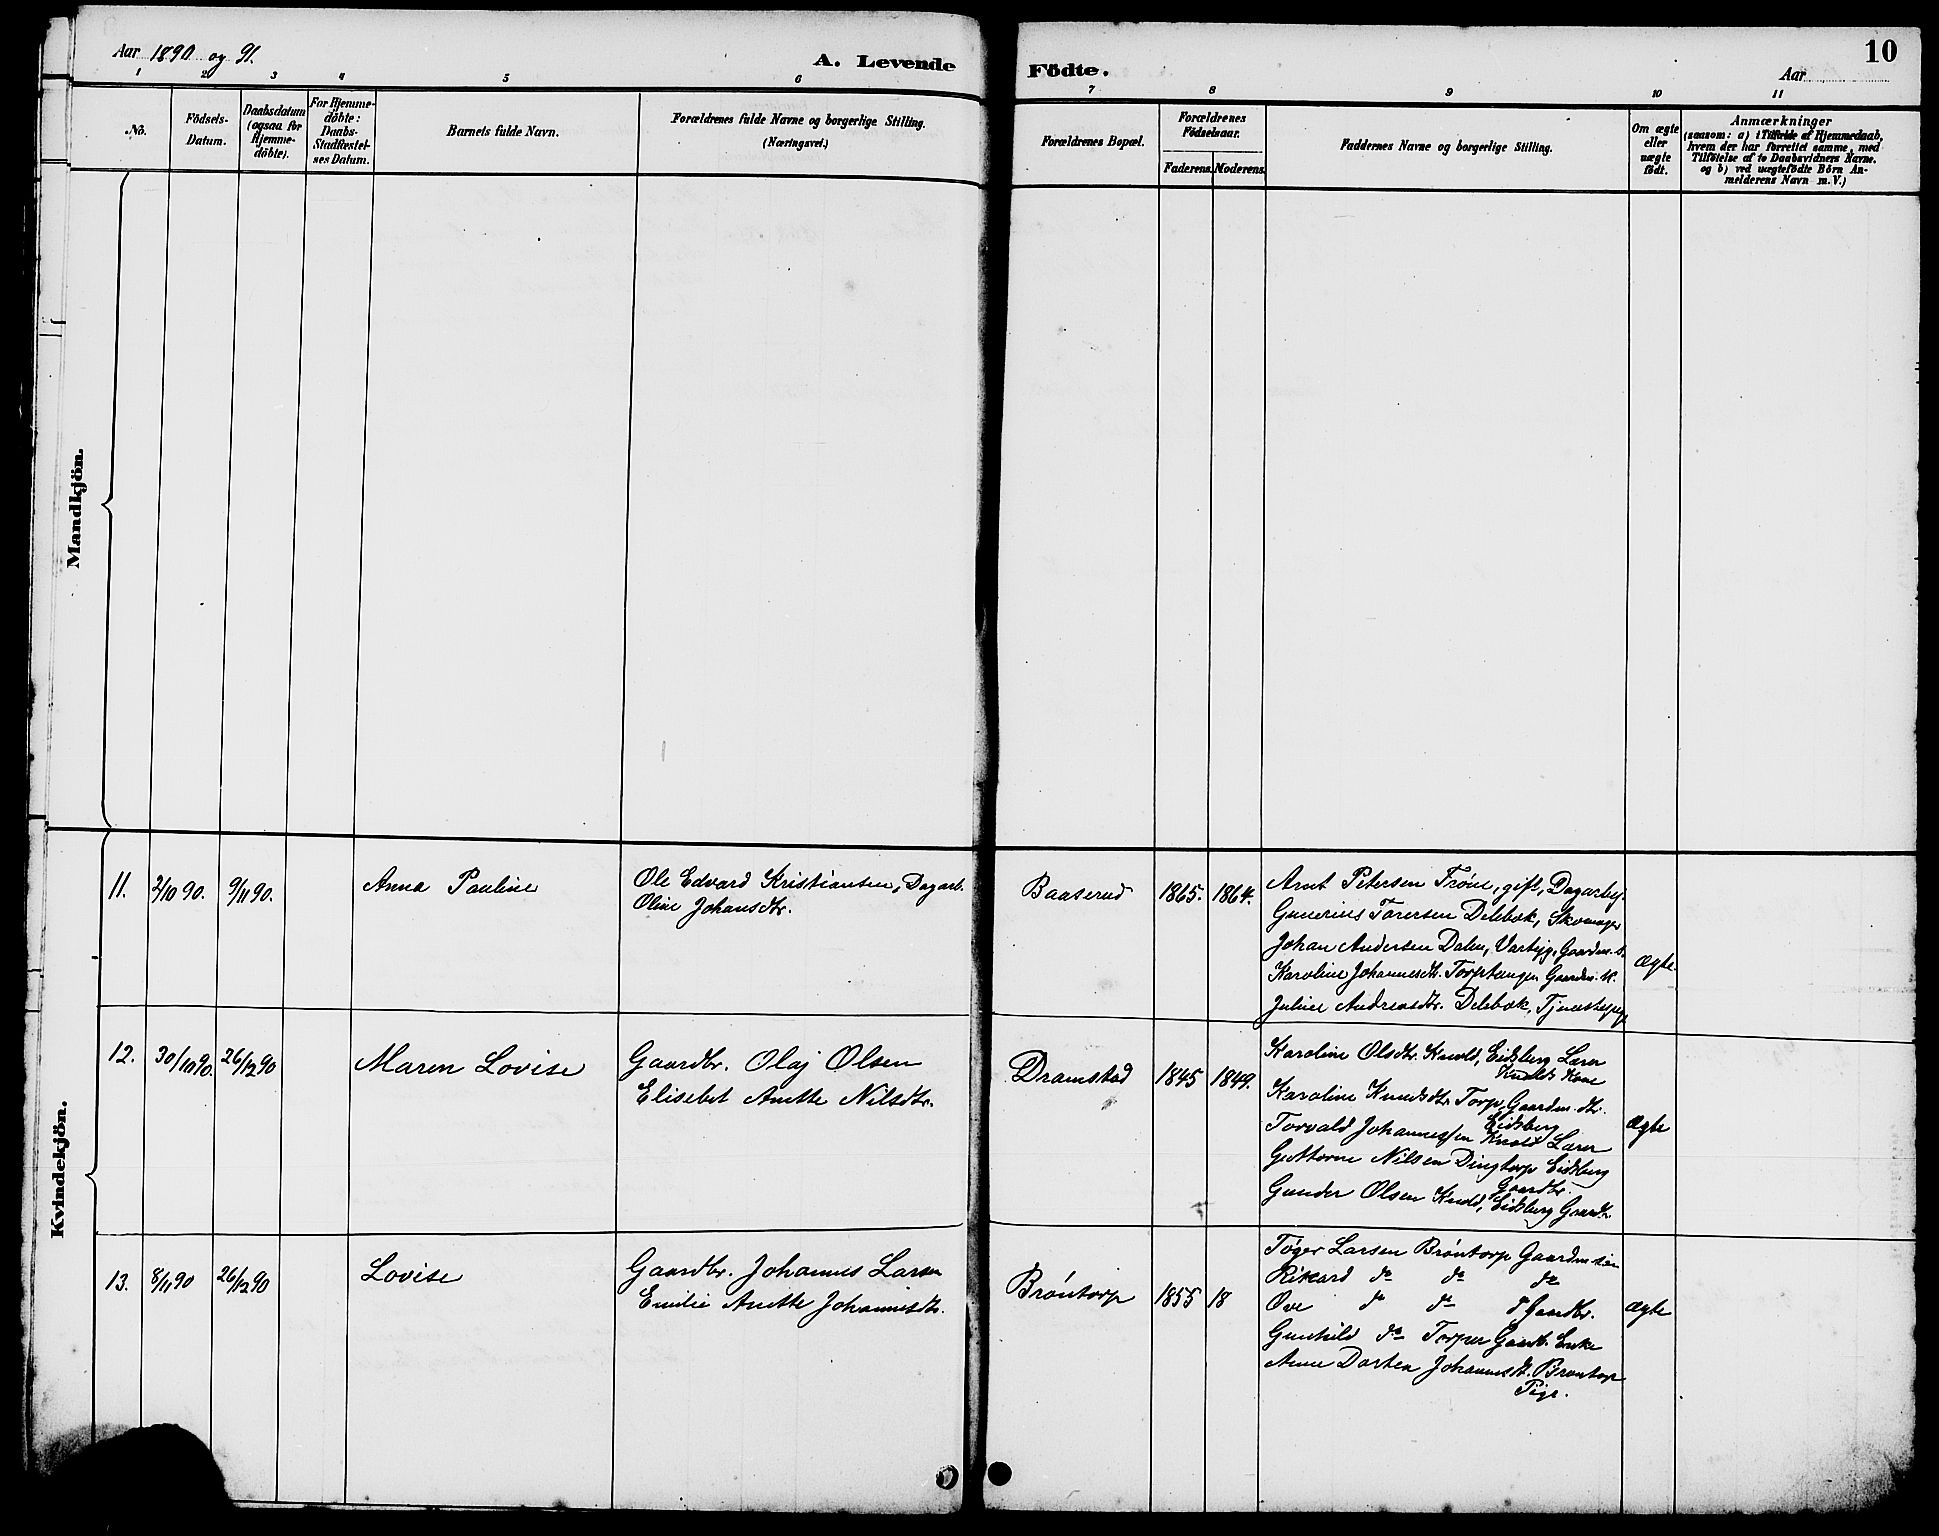 Aar 1890 og 91.
A. Levende
Födte.
Aar
10
1 2 3 4 5 6 7 8 9 10 11
No.
Födsels-
Datum.
Daabsdatum
(ogsaa for
Hjemme-
döbte).
For Hjemme-
döbte:
Daabs-
Stadfæstel-
ses Datum.
Barnets fulde Navn.
Forældrenes fulde Navne og borgerlige Stilling.
(Næringsvei.)
Forældrenes Bopæl.
Forældrenes
Födselsaar.
Faderens. Moderens.
Faddernes Navne og borgerlige Stilling.
Om ægte
eller
uægte
födt.
Anmærkninger
(saasom: a) i Tilfælde af Hjemmedaab,
hvem der har forrettet samme, med
Tilföielse af to Daabsvidners Navne.
og b) ved uægtefödte Börn An-
melderens Navn m. V.)
Mandkjön.
Kvindekjön.
11. 2/10 90. 9/11 90. Anna Pauline
Ole Edvard Kristiansen, Dagarb.
Oline Johansdtr.
Baaserud 1865. 1864.
Arnt Petersen Trøne, gift, Dagarbej.
Gunerius Torersen Delebæk, Skomager
Johan Andersen Dalen, Varteig, Gaardm. s.
Karoline Johannesdtr. Torptangen Gaardm. K.
Juline Andreasdtr. Delebæk, Tjenestepige
Ægte.
12. 30/10 90. 26/12 90 Maren Lovise
Gaardbr. Olaj Olsen
Elisebet Anette Nilsdtr.
Dramstad 1845 1849.
Karoline Olsdtr. Knold, Eidsberg Lærer
Knolds Kone
Karoline Knudsdtr. Torp, Gaardm. dtr.
Eidsberg
Torvald Johannessen Knold Lærer
Guttorm Nilsen Dingtorp Eidsberg
Gaardbr.
Gunder Olsen Knold, Eidsberg Gaardb.
Ægte
13. 8/11 90 26/12 90 Lovise
Gaardbr. Johannes Larsen
Emilie Anette Johannesdtr.
Brøntorp 1855 18
Tøger Larsen Brøntorp Gaardm. søn
Rikard do do do
Ove do do do Gaardbr.
Gunhild do Torper Gaardb. Enke
Anne Dortea Johannesdt. Brøntorp
Pige.
Ægte